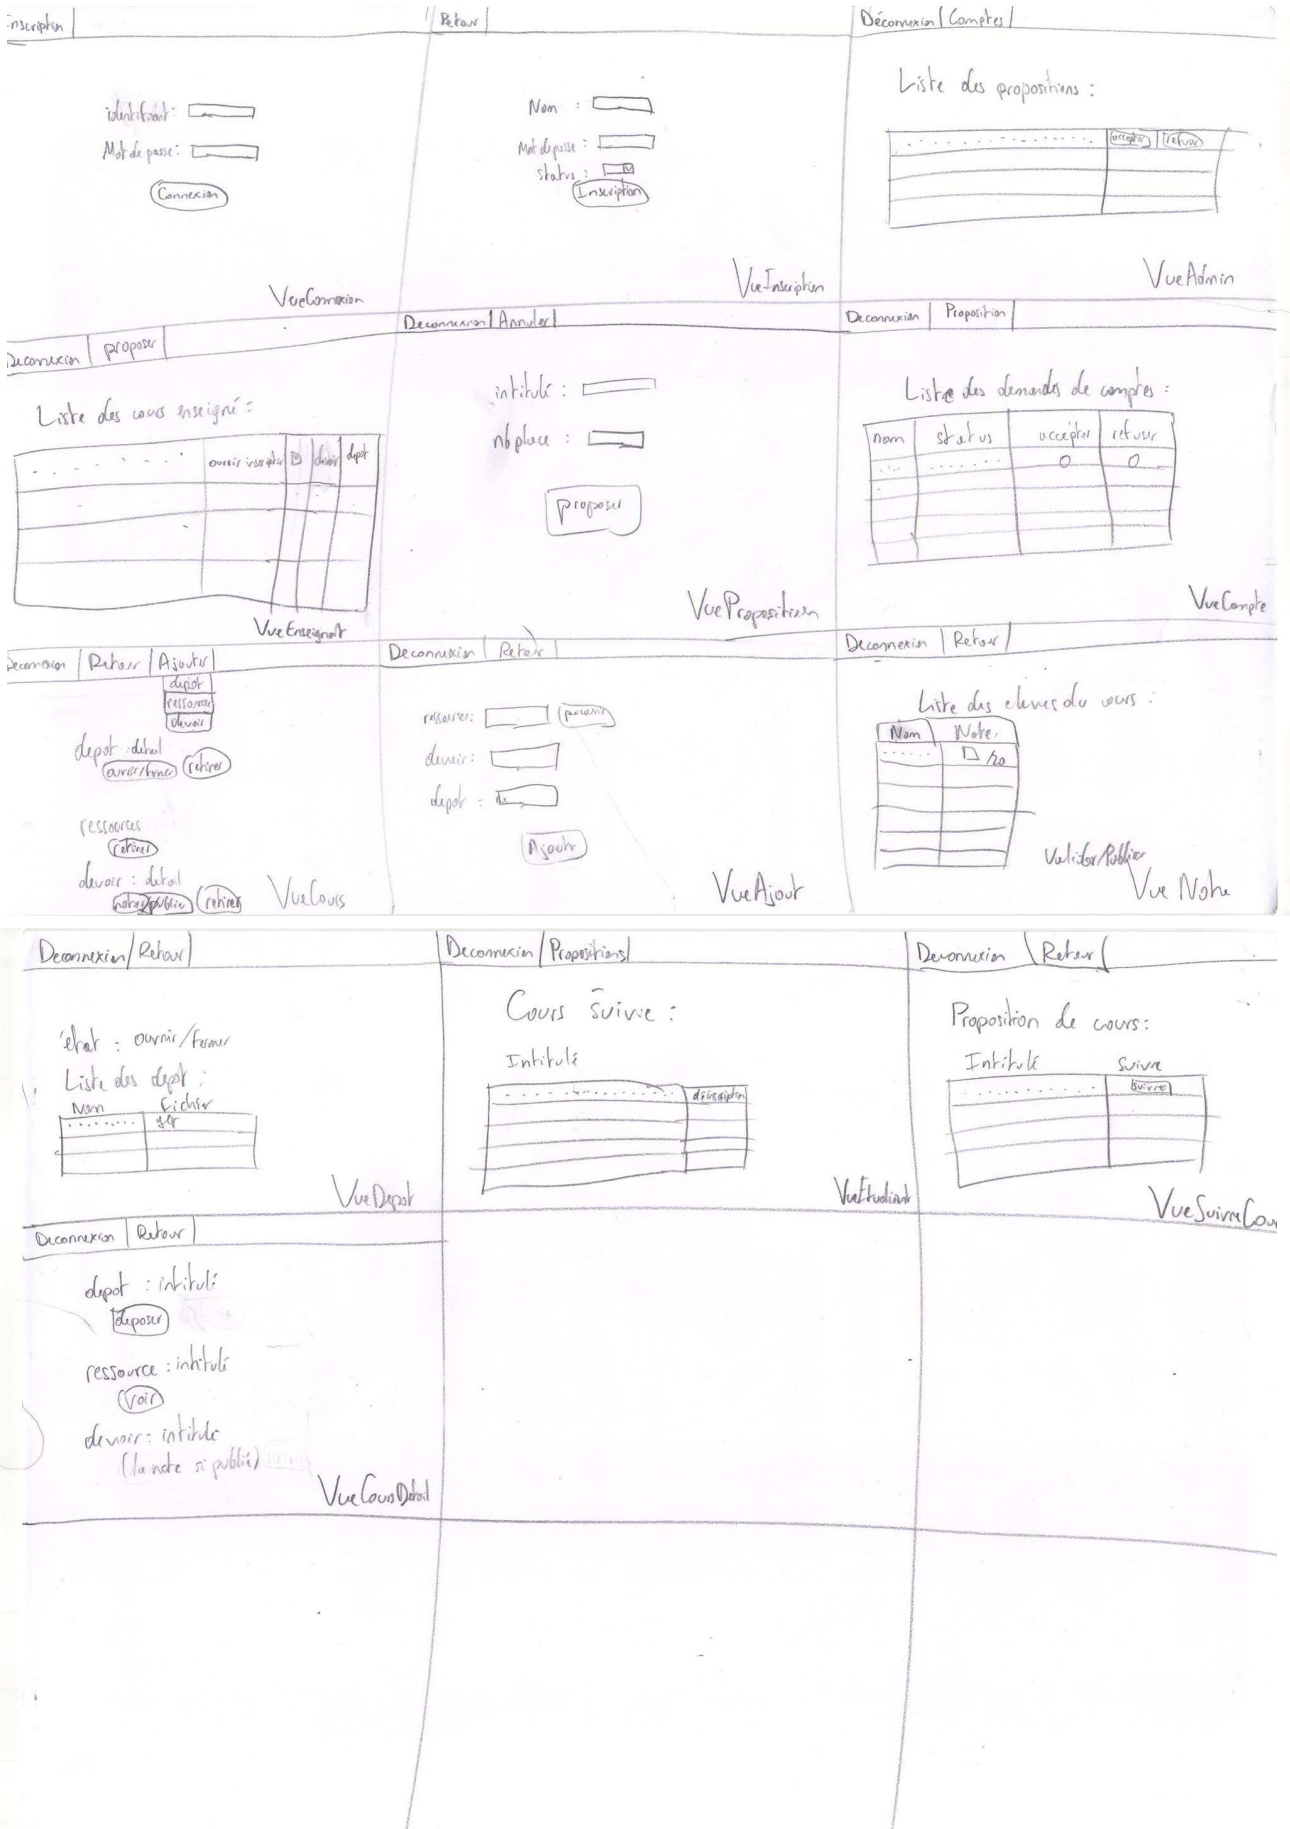 Inscription
identifiant :
Mot de passe :
Connexion
VueConnexion
Retour
Nom :
Mot de passe :
status :
Inscription
VueInscription
Déconnexion Comptes
Liste des propositions :
accepter refuser
VueAdmin
Deconnexion proposer
Liste des cours enseigné :
ouvrir inscription devoir depot
VueEnseignant
Deconnexion Annuler
intitulé :
nb place :
proposer
VueProposition
Deconnexion Proposition
Liste des demandes de comptes :
nom status accepter refuser
VueCompte
Deconnexion Retour Ajouter
depot
ressource
devoir
depot : detail
ouvrir/fermer retirer
ressources
retirer
devoir : detail
noter/publier retirer
VueCours
Deconnexion Retour
ressource : parcourir
devoir :
depot :
Ajouter
VueAjout
Deconnexion Retour
Liste des eleves du cours :
Nom Note
/20
Valider/Publier
Vue Note
Deconnexion Retour
état : ouvrir/fermer
Liste des depot :
Nom fichier
VueDepot
Deconnexion Propositions
Cours suivie :
Intitulé
désinscription
VueEtudiant
Deconnexion Retour
Proposition de cours :
Intitulé Suivre
suivre
VueSuivreCou
Deconnexion Retour
depot : intitulé
deposer
ressource : intitulé
Voir
devoir : intitulé
(la note si publié)
VueCoursDetail